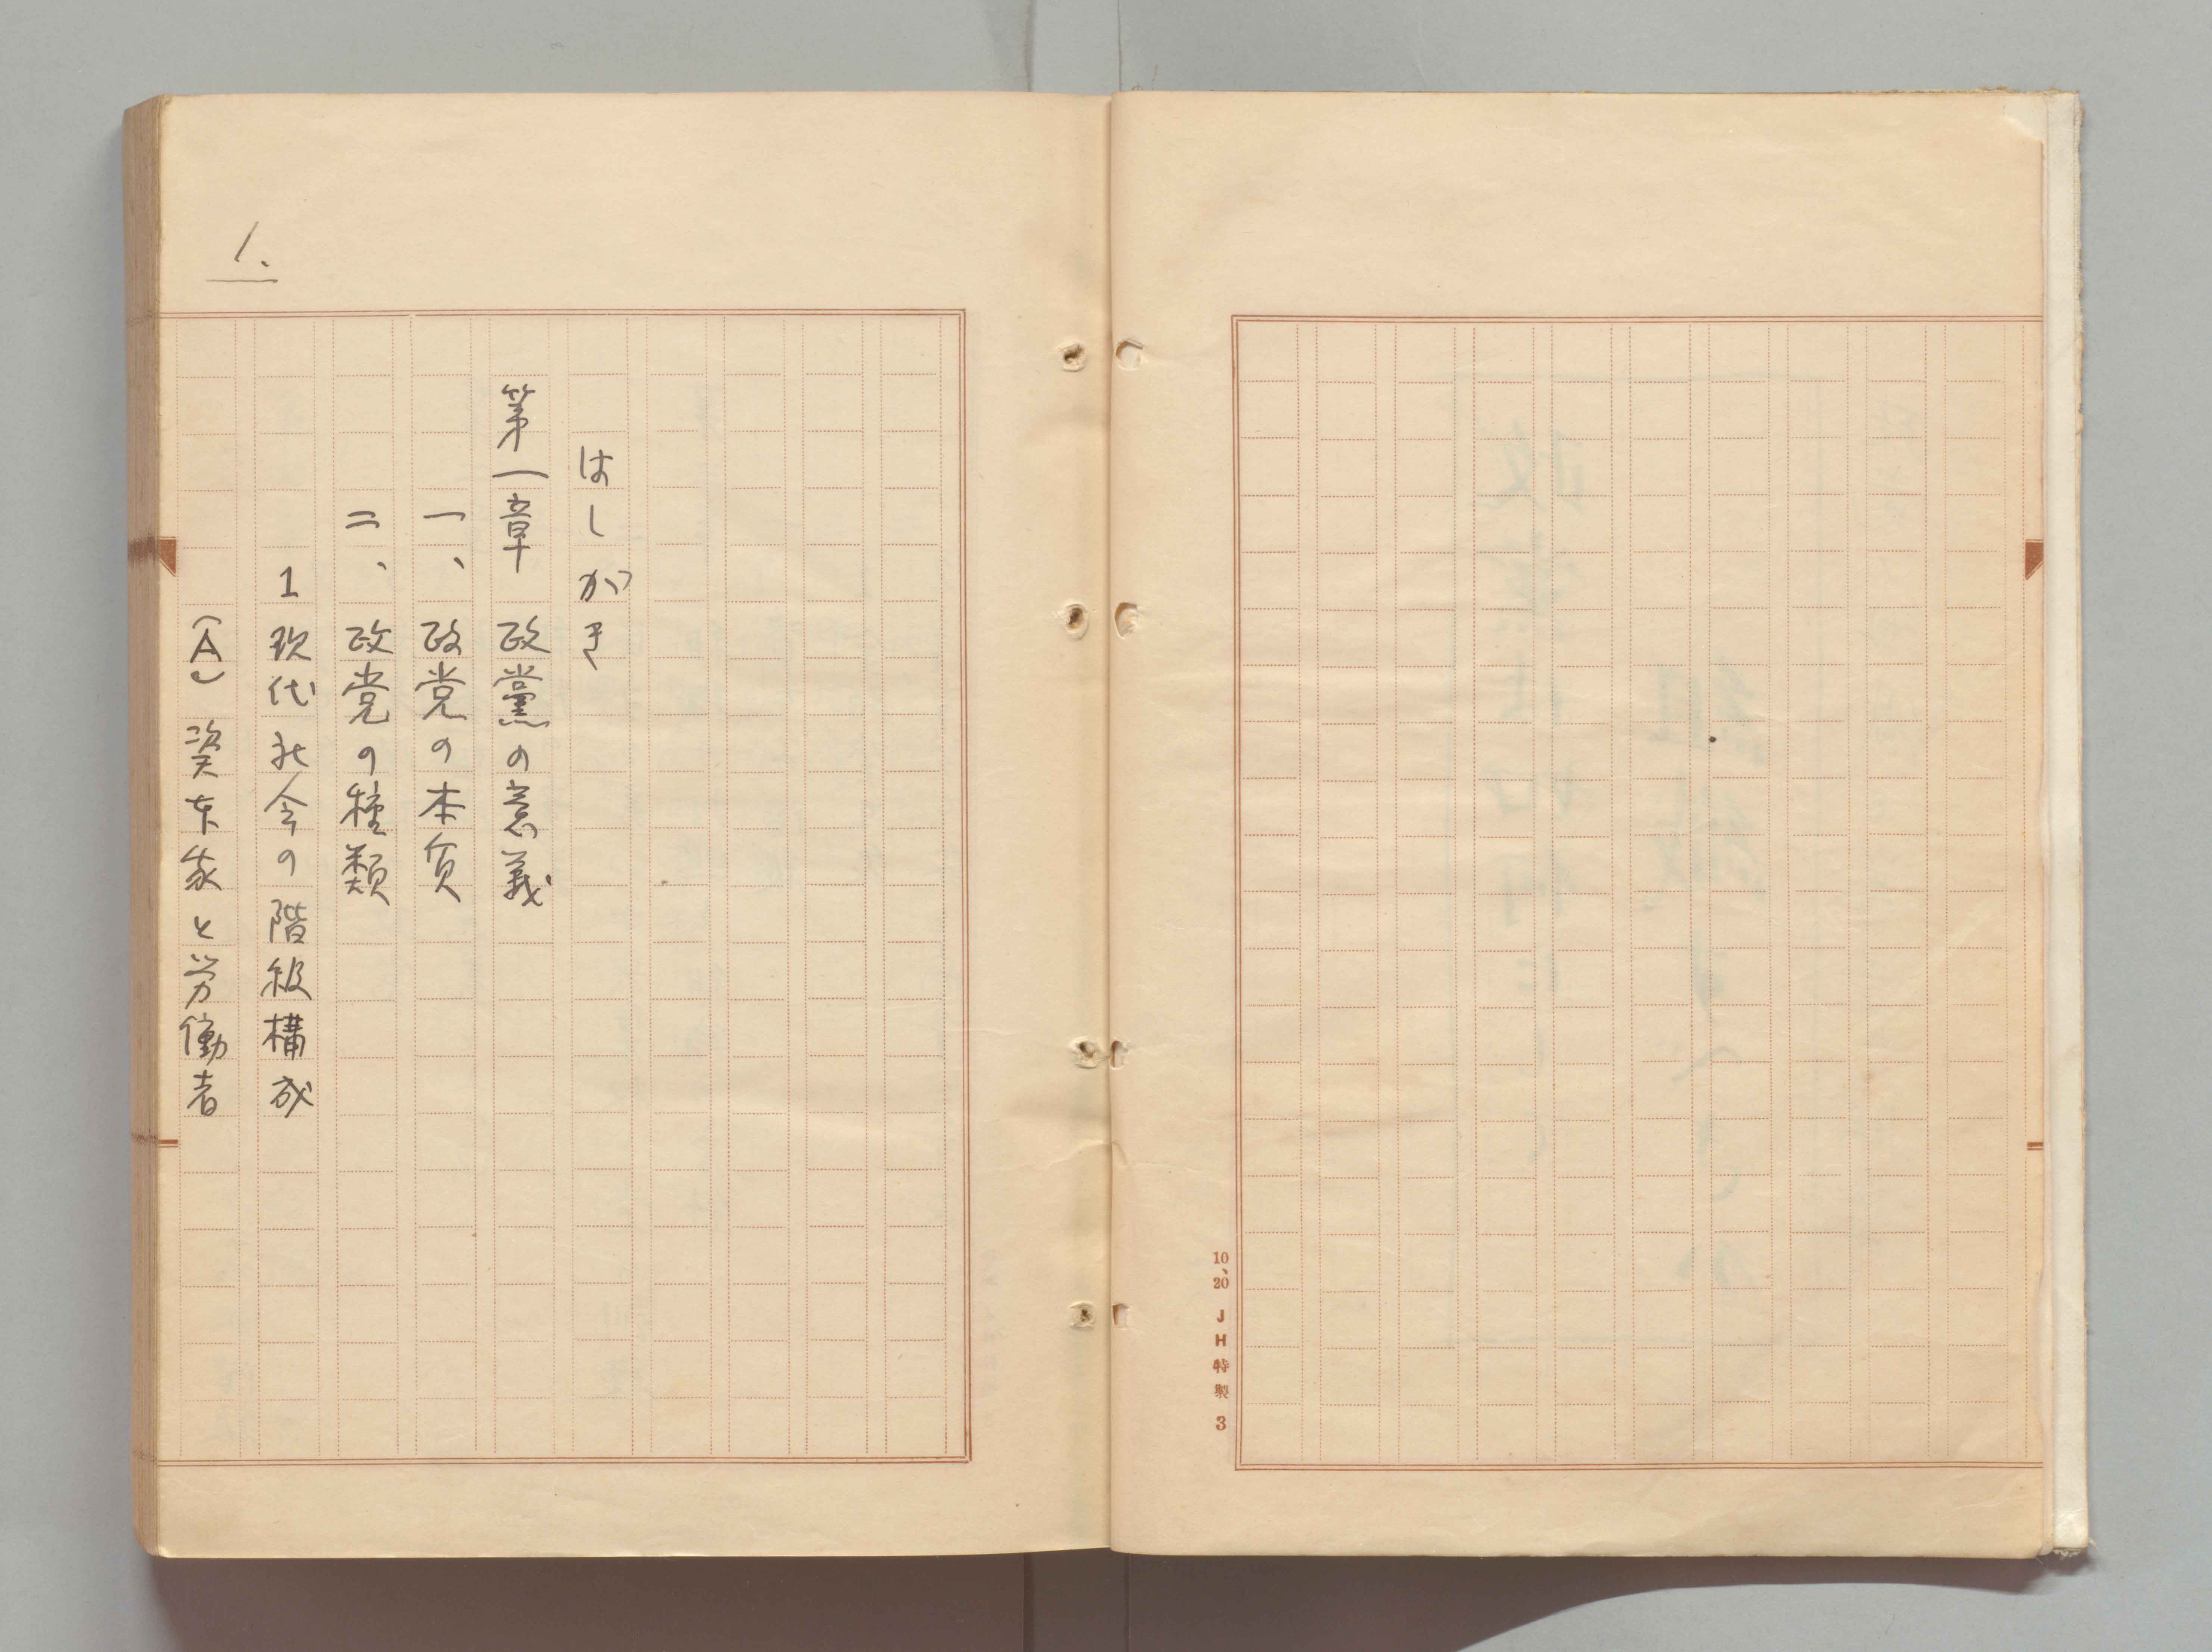 10、20 JH特製 3
1.
はしがき
第一章 政黨の意義
一、政党の本質
二、政党の種類
1 現代社会の階級構成
(A) 資本家と労働者